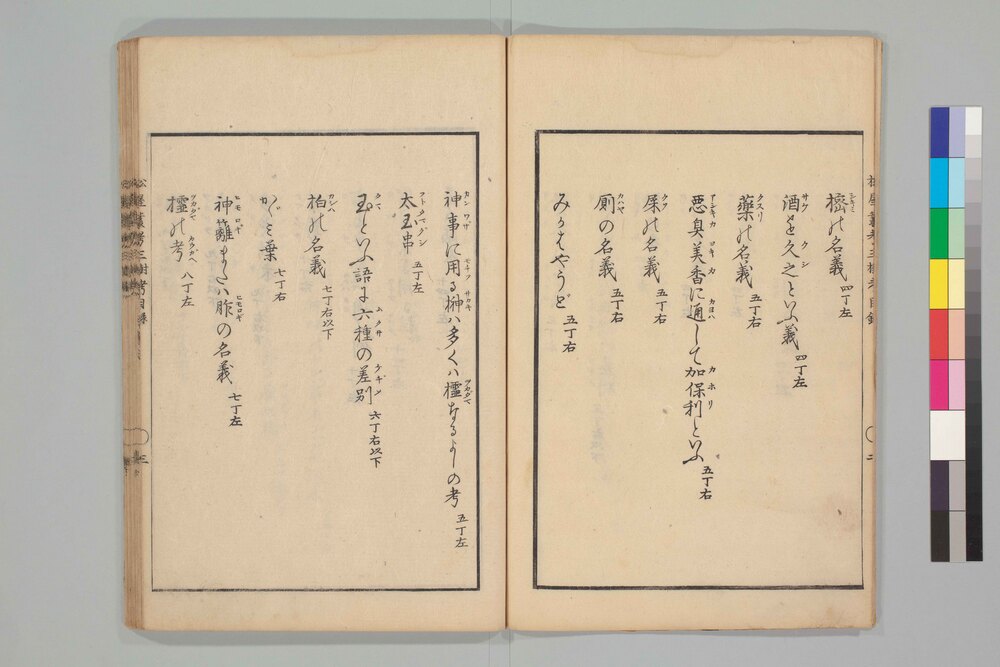 樒の名義 四丁左
酒を久之といふ義 四丁左
藥の名義 五丁右
悪臭美香に通して加保利といふ 五丁右
屎の名義 五丁右
厠の名義 五丁右
みかはやうど 五丁右
神事に用る榊ハ多くハ櫺なるよしの考 五丁左
太玉串 五丁左
玉といふ語に六種の差別 六丁右以下
柏の名義 七丁右以下
かゞみ葉 七丁右
神籬または胙の名義 七丁左
櫺の考 八丁左